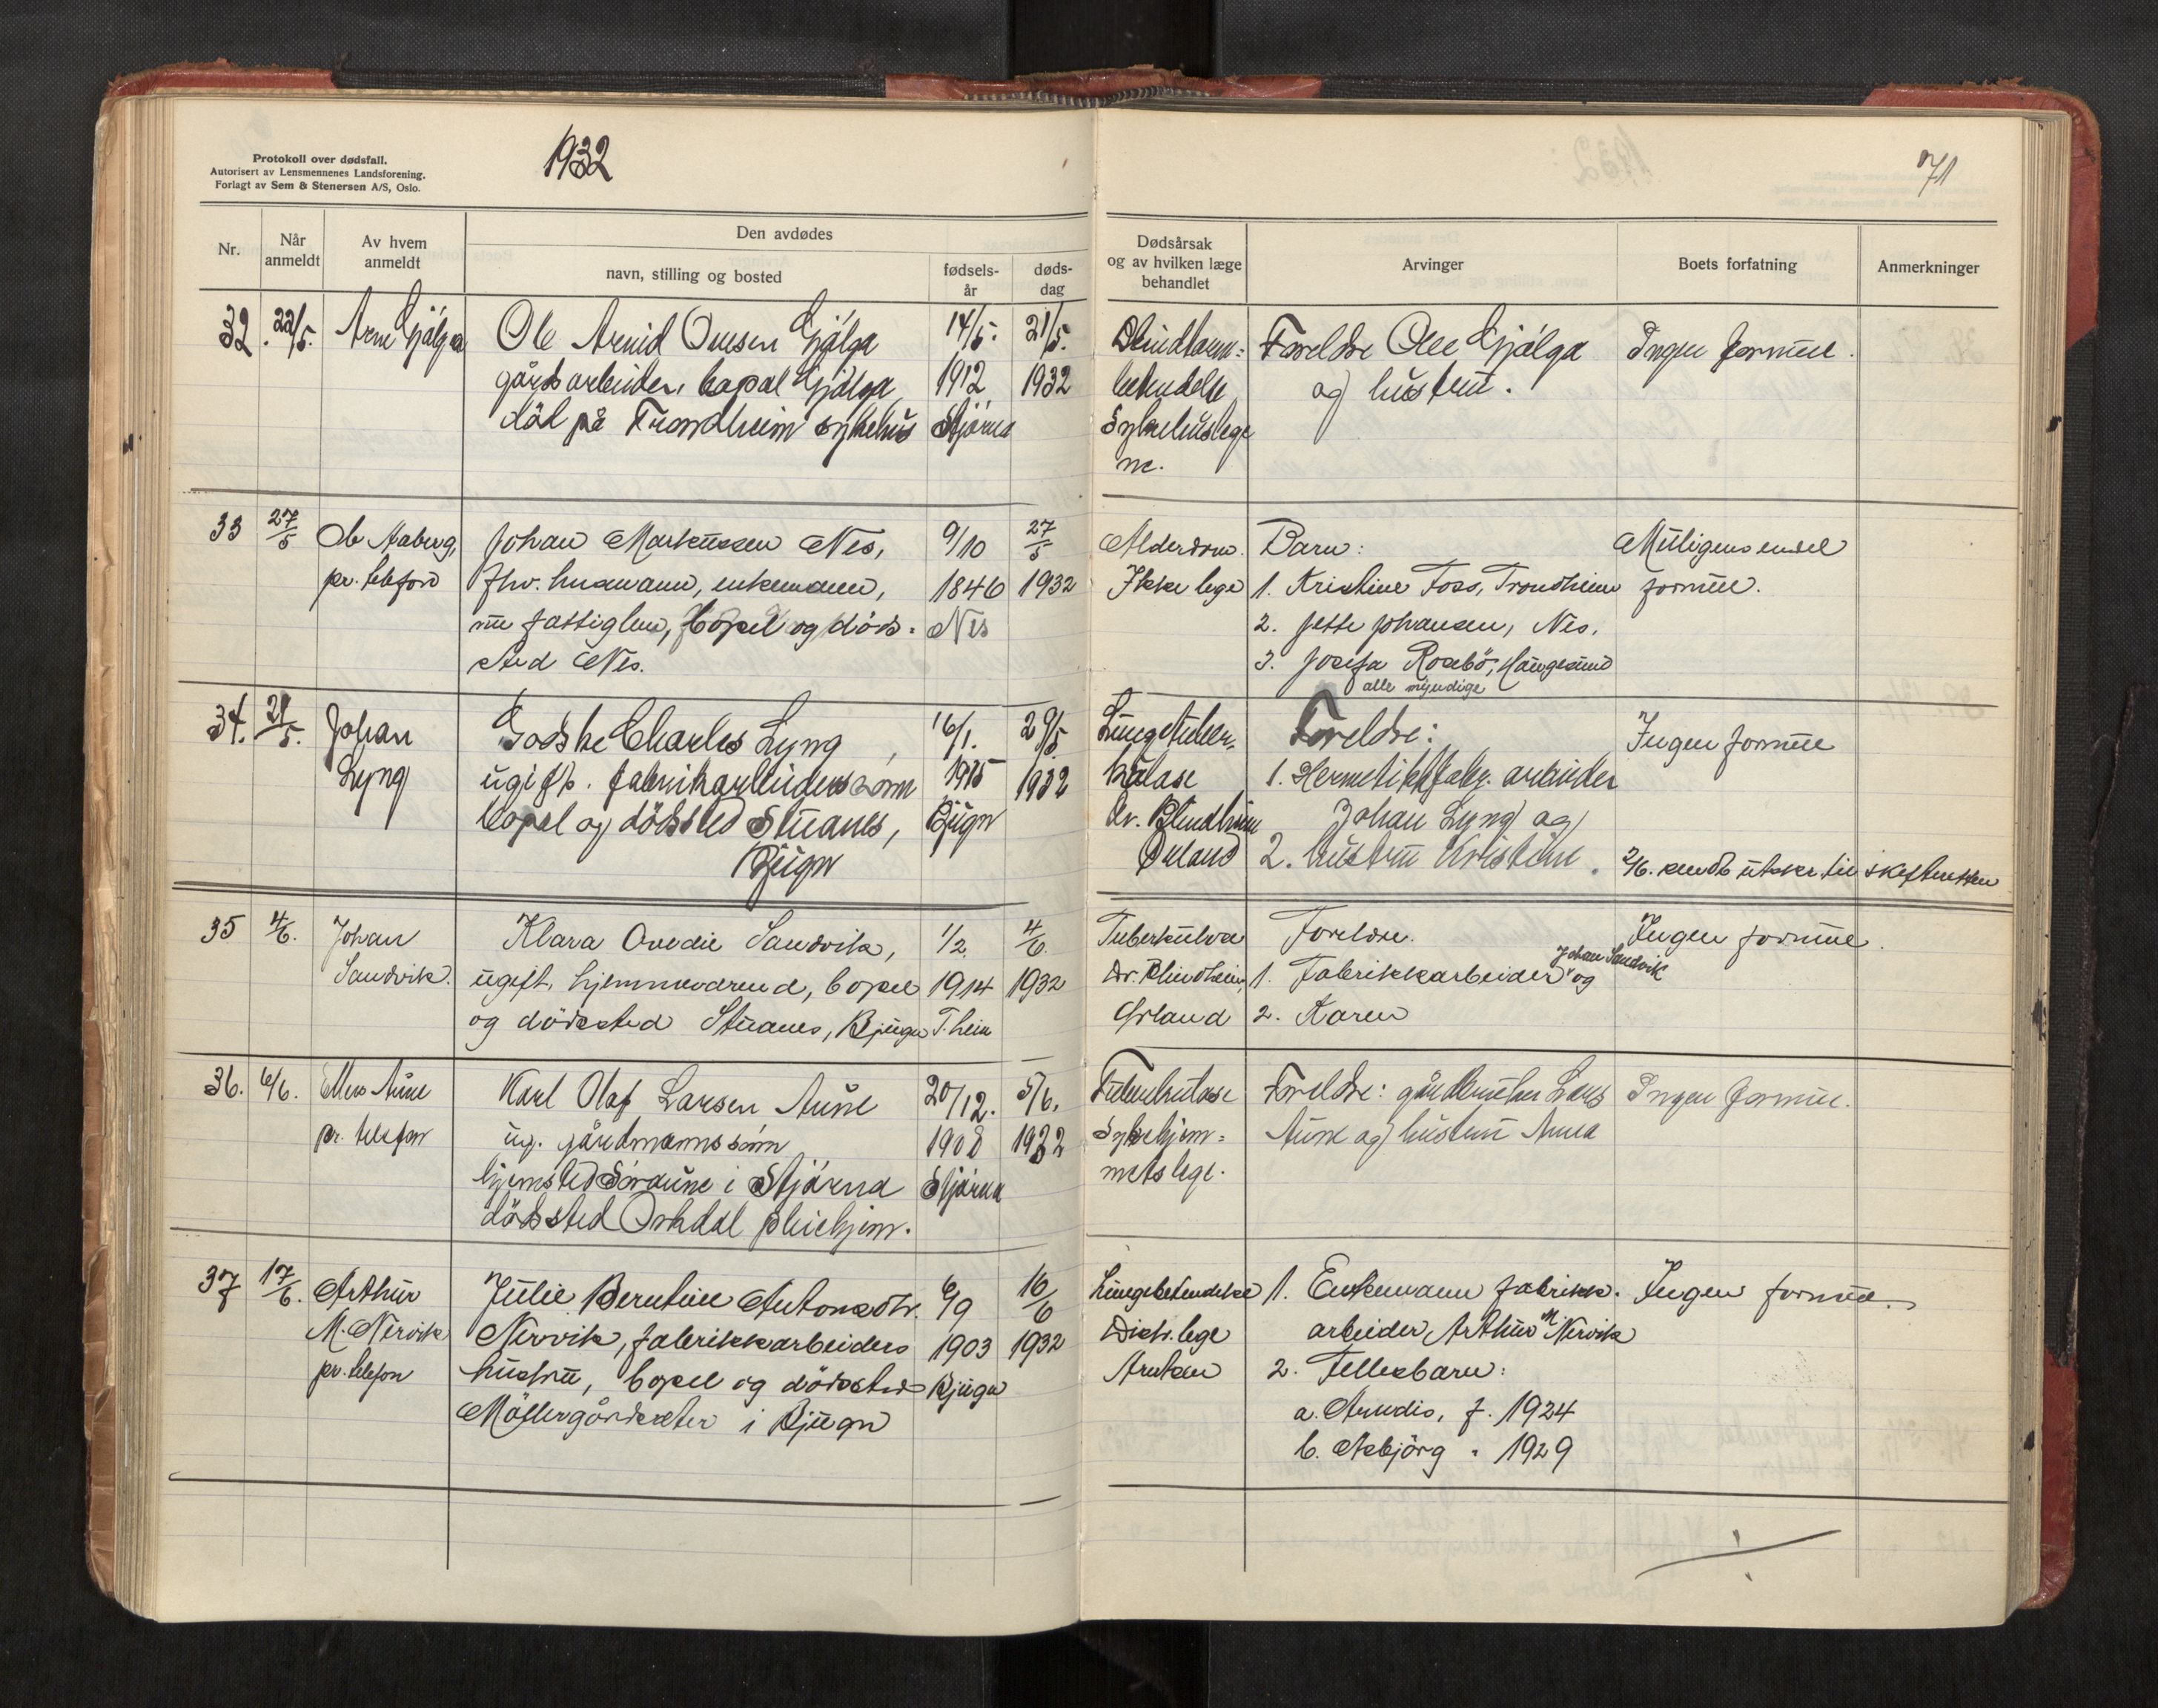 Protokoll over dødsfall.
Autorisert av Lensmennenes Landsforening.
Forlagt av Sem & Stenersen A/S, Oslo.
1932
71
Nr.
Når
anmeldt
Av hvem
anmeldt
Den avdødes
navn, stilling og bosted
fødsels-
år
døds-
dag
Dødsårsak
og av hvilken læge
behandlet
Arvinger
Boets forfatning
Anmerkninger
32. 22/5. Arne Gjölga
Ole Arnid Olesen Gjölga
gårdsarbeider, bopel Gjölga
död på Trondheim sykehus
14/5.
1912
Stjörna
21/5.
1932
Blindtarm-
betendelse
Sykehuslege
ne.
Foreldre Ole Gjölga
og hustru.
Ingen formue.
33 27/5 Ole Aaberg,
pr. telefon
Johan Markussen Nes,
fhv. husmann, enkemann,
nu fattiglem, bopel og döds-
sted Nes.
9/10
1846
Nes
27/5
1932
Alderdom.
Ikke lege
Barn:
1. Kristine Foss, Trondheim
2. Jette Johansen, Nes.
3. Josefa Rosbö, Haugesund
alle myndige
Muligens endel
formue.
34. 29/5. Johan
Lyng
Godske Charles Lyng,
ugift. fabrikarbeiderssönn
bopel og dödsted Stuanes,
Bjugn
16/1.
1915
Bjugn
29/5
1932
Lungetuber-
kulose
dr. Blindheim
Örland
Foreldre:
1. Hermetikkfabr. arbeider
Johan Lyng og
2. hustru Kristine.
Ingen formue
2/6. sendt utskr. til skifteretten
35 4/6. Johan
Sandvik.
Klara Ovedie Sandvik,
ugift, hjemmeværend, bopel
og dödssted Stuanes, Bjugn
1/2.
1914
T.heim
4/6
1932
Tuberkulose
Dr. Blindheim,
Örland
Foreldre.
Johan Sandvik
1. Fabrikkarbeider og
2. Karen
Ingen formue.
36. 6/6. Aune
pr. telefon
Karl Olaf Larsen Aune
ug. gårdmannssönn
hjemsted Söraune i Stjörna
dödssted Orkdal pleiehjem.
20/12.
1908
Stjörna
5/6.
1932
Tuberkulose
Sykehjem-
mets lege.
Foreldre: gårdbruker Lars
Aune og hustru Anna
Ingen formue.
37 17/6. Arthur
M. Nervik
pr. telefon
Julie Berntine Antonsdtr.
Nervik, fabrikkarbeiders
hustru, bopel og dödssted
Möllergårdseter i Bjugn
6/9
1903
Bjugn
16/6
1932
Lungebetendelse
Distr. lege
Arntsen
1. Enkemann fabrikk-
arbeider Arthur M. Nervik
2. Fellesbarn:
a. Arndis, f. 1924
b. Asbjörg " 1929
Ingen formue.